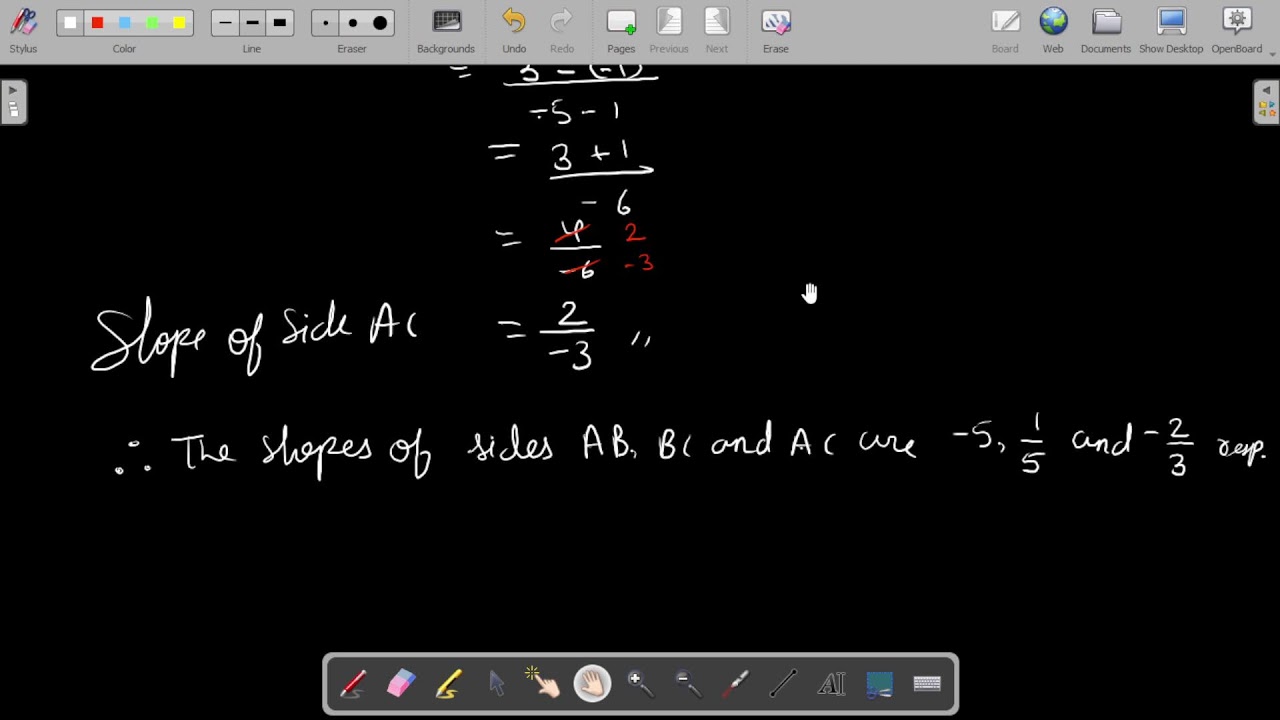 Stylus Color Line Eraser Backgrounds Undo Redo Pages Previous Next Erase Board Web Documents Show Desktop OpenBoard
= 3 - (-1)
-5 - 1
= 3 + 1
- 6
= 4 2
-6 -3
Slope of Side AC = 2
-3 ,,
∴ The slopes of sides AB, BC and AC are -5, 1/5 and -2/3 resp.
AI